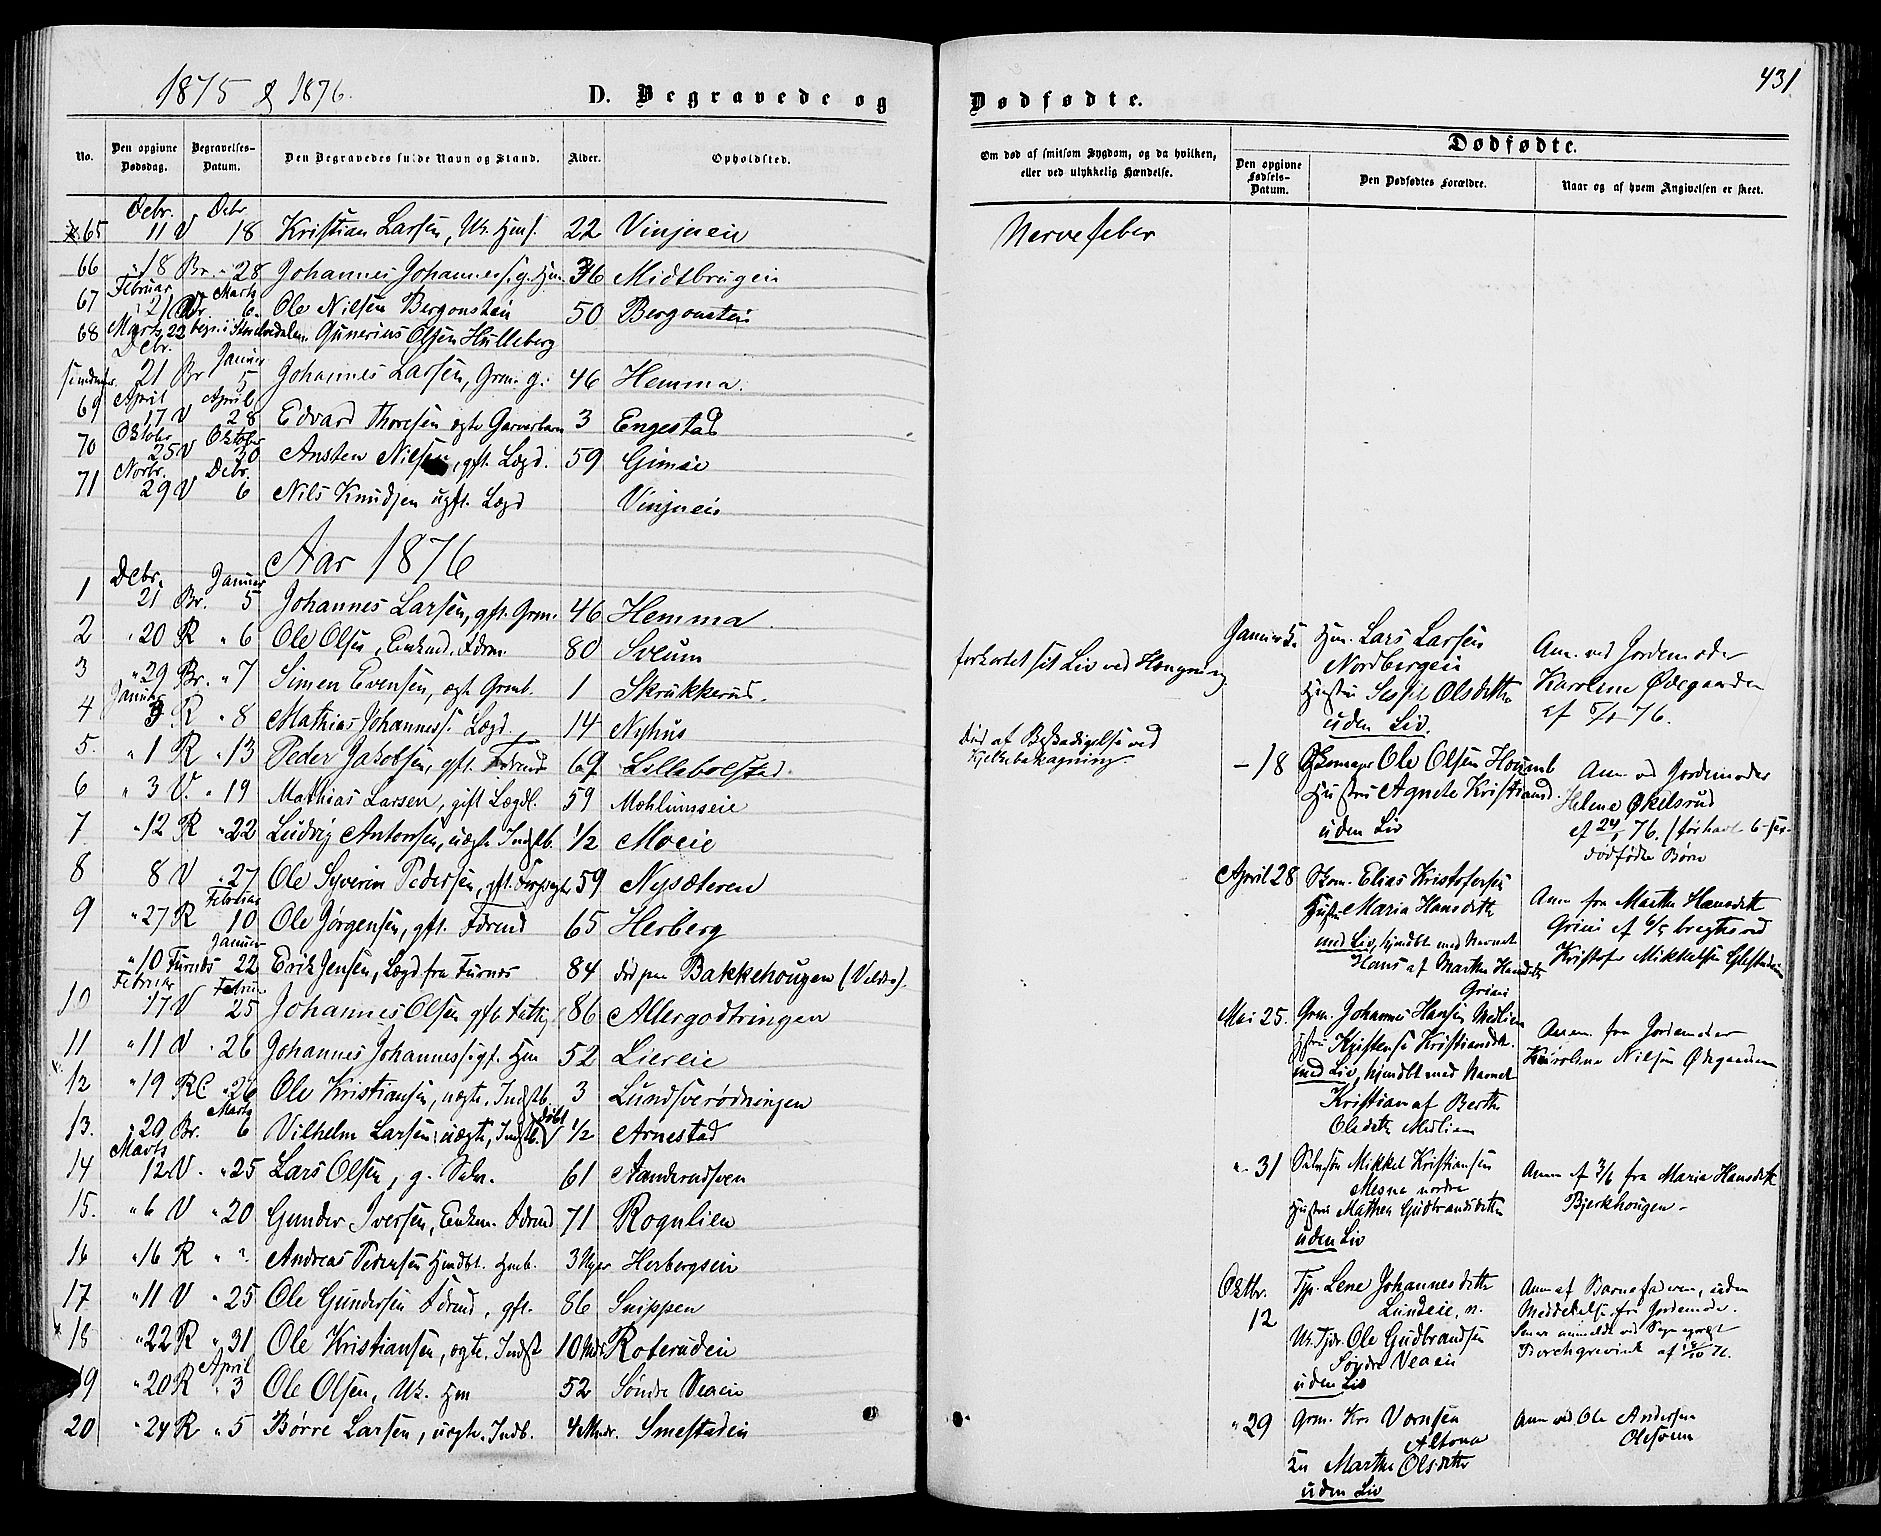 1875 & 1876.
D. Begravede og
No. Den opgivne Dødsdag. Begravelses-Datum. Den Begravedes fulde Navn og Stand. Alder. Opholdsted.
Debr. Debr
65 11 V 18 Kristian Larsen, Uk. Hms. 22 Vinjueie
66 " 18 Br. " 28 Johannes Johanness. g. Hm. 36 Midtbrugeie
Februar Marts
67 " 21 Br. 6. Ole Nilsen Bergonstein 50 Bergonstein
68 Marts 22 Gunerius Olsen Hulleberg
Debr. Januer
21 Br 5 Johannes Larsen, Grm. g. 46 Hemma.
April April
69 17 V 28 Edvard Thoresen ægte Garverbarn 3 Engestad
Oktobr Oktober
70 25 V 30 Ansten Nilsen, gft. Lægd. 59 Gimse
Novbr. Debr.
71 29 V 6 Nils Knudsen ugft. Lægd Vinjueie
Aar 1876
Debr. Januer
1 21 Br. 5 Johannes Larsen, gft. Grm. 46 Hemma.
2 " 20 R " 6 Ole Olsen, Enkmd. Fdrm. 80 Sveum
3 " 29 Br. " 7 Simen Evensen, ægt Grmb. 1 Skrukkerud.
Januer
4 3 R " 8 Mathias Johanness. Lægd. 14 Nyhus
5. " 1 R " 13 Peder Jakobsen, gft. Fdrmd 69 Lillebolstad.
6 " 3 V. " 19 Mathias Larsen, gift Lægdl. 59 Mæhlumseie
7 " 12 R " 22 Ludvig Antonsen, uægte Indstb. 1/2 Moeie
8 8 V " 27 Ole Syverin Pedersen, gft. Forpagt 59 Nysæteren
Februar
9 " 27 R 10 Ole Jørgensen, gft. Fdrmd 65 Herberg
Januer
" 10 Furnes 22 Erik Jensen, Lægd fra Furnes 84 død paa Bakkehougen (Veldre).
Februar Februar
10 17 V 25 Johannes Olsen gft. fattig 86 Allergodtringen
11 " 11 V " 26 Johannes Johanness. gf. Hm 52 Liereie
12 " 19 RC " 26 Ole Kristiansen, uægte, Indstb. 3 Lundsverødningen
Marts
13. " 20 Br. 6 Vilhelm Larsen uægte, Indstb. døbt 1/2 Arnestad
Marts
14 12 V. " 25 Lars Olsen, g. Selv. 61 Aanderudsveen
15. " 6 V " 20 Gunder Iversen, Enkem. Fdrmd 71 Rognlien
16 " 16 R " ? Andreas Pedersen Hjmdbt. Hmb. 3 Uger Herbergseie
17 " 11 V " 25 Ole Gundersen Fdrmd, gft. 86 Snippen
18 " 22 R " 31 Ole Kristiansen, ægte. Indst 10 Mdr. Roterudeie
April
19 " 20 R " 3 Ole Olsen, Uk. Hm 52 Søndre Veaeie
20 " 24 R " 5 Børre Larsen, uægte. Indb. 4 Mndr. Smestadeie
431
Dødfødte.
Om død af smitsom Sygdom, og da hvilken, eller ved ulykkelig Hændelse.
Dødfødte.
Den opgivne Fødsels-Datum. Den Dødfødtes Forældre. Naar og af hvem Angivelsen er skeet.
Nervefeber
forkortet sit Liv ved Hængning
Død af Beskadigelse ved
Kjelkebakagning
Januer 5. Hm. Lars Larsen
Nordbergeie
Hustru Sessil Olsdatter
uden Liv.
Anm. ved Jordemoder
Karoline Ødegaarden
af 5/1 76.
- 18 Skomager Ole Olsen Houmb
Hustru Agnete Kristiansd.
uden Liv
Anm. ved Jordemoder
Helene Økelsrud
af 24/1 76. (før havt 6 sex
dødfødte Børn
April 28 Skom. Elias Kristofersen
Hustru Maria Hansdatter
med Liv, hjmdbt med Navnet
Hans af Marthe Hansdatter
Griui
Anm fra Marthe Hansdatt
Griui af 6/5 bragt ved
Kristofer Mikkelsen
Mai 25. Grm. Johannes Hansen Medlien
Hstru Kristense Kristiansdtr.
med Liv, hjmdbt med Navnet
Kristian af Berthe
Olsdatter Medlien
Anm. fra Jordemoder
Karoline Nilsen Ødegaarden
" 31 Mikkel Kristiansen
Mesna nordre
Hustru Mathea Gudbrandsdatter
uden Liv
Anm af 3/6 fra Maria Hansdatt
Bjerkhougen -
Oktbr. 12 Tjp. Lene Johannesdatter
Lundeie, n.
Uk. Tjdr. Ole Gudbrandsen
Søndre Veaeie
uden Liv
Anm af Barnefaderen, uden
Meddelelse fra Jordemoder.
Senere anmeldt ved Sogneprest
Borchgrevink af 19/10 76.
" 29 Grm. Kr. Vornsen
Altona
Marthe Olsdatter
uden Liv
Anm ved Ole Andersen
Olesveen